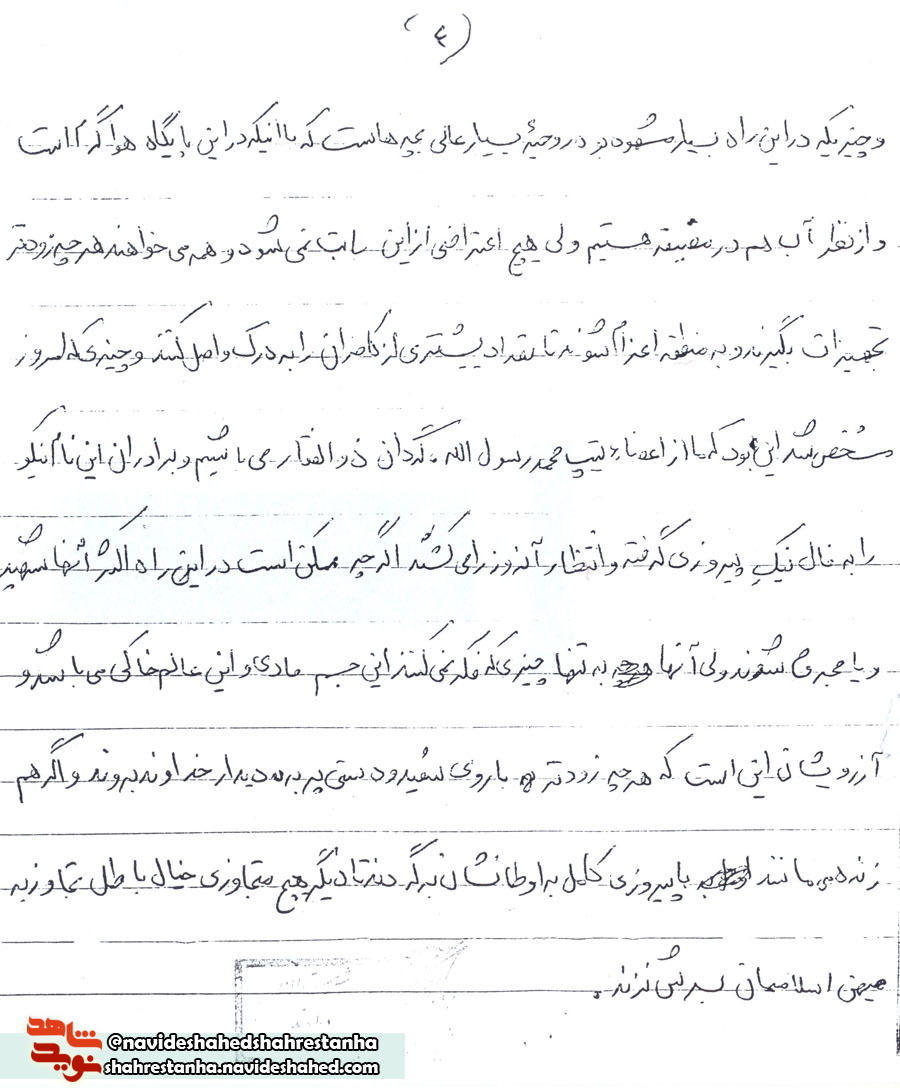 (۴)
و چیزیکه در این راه بسیار مشهود بود روحیهٔ بسیار عالی بچه هاست که با اینکه در این پایگاه هوا گرم است
و از نظر آب هم در مضیقه هستیم ولی هیچ اعتراضی از این بابت نمی شود و همه می خواهند هر چه زودتر
تجهیزات بگیرند و به منطقه اعزام شوند تا تعداد بیشتری از کافران را به درک واصل کنند و چیزی که امروز
مشخص شد این بود که ما از اعضاء تیپ محمد رسول الله، گردان ذوالفقار می باشیم و برادران این نام نیکو
را به فال نیکِ پیروزی گرفته و انتظار آنروز را می کشند اگر چه ممکن است در این راه اکثر آنها شهید
و یا مجروح شوند ولی آنها به تنها چیزی که فکر نمی کنند این جسم مادی و این عالم خاکی می باشد و
آرزویشان این است که هر چه زودتر با روی سفید و دستی پر به دیدار خداوند بروند و اگر هم
زنده می مانند با پیروزی کامل به اوطانشان برگردند تا دیگر هیچ متجاوزی خیال باطل تجاوز به
میهن اسلامیمان بسرش نزند.
شاهد
نوید
@navideshahedshahrestanha
shahrestanha.navideshahed.com